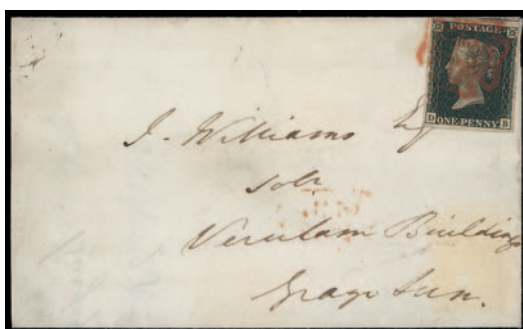 POSTAGE
D B
ONE PENNY
J. Williams Esq
Solr
Verulam Buildings
Grays Inn.